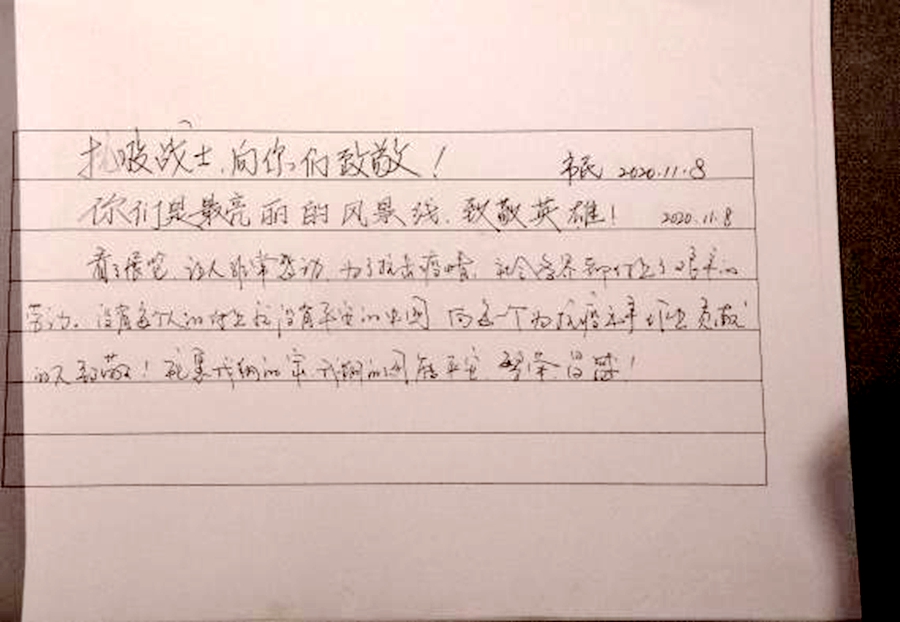 战士,向你们致敬! 市民 2020.11.8
你们是最亮丽的风景线,致敬英雄! 2020.11.8
看了展览,让人非常感动,为了抗击疫情,社会各界都付出了艰辛的
劳动。没有每个人的付出就没有平安的中国 向每一个为抗疫 贡献
的人致敬!祝 我们的家 我们的国 平安,繁荣昌盛!